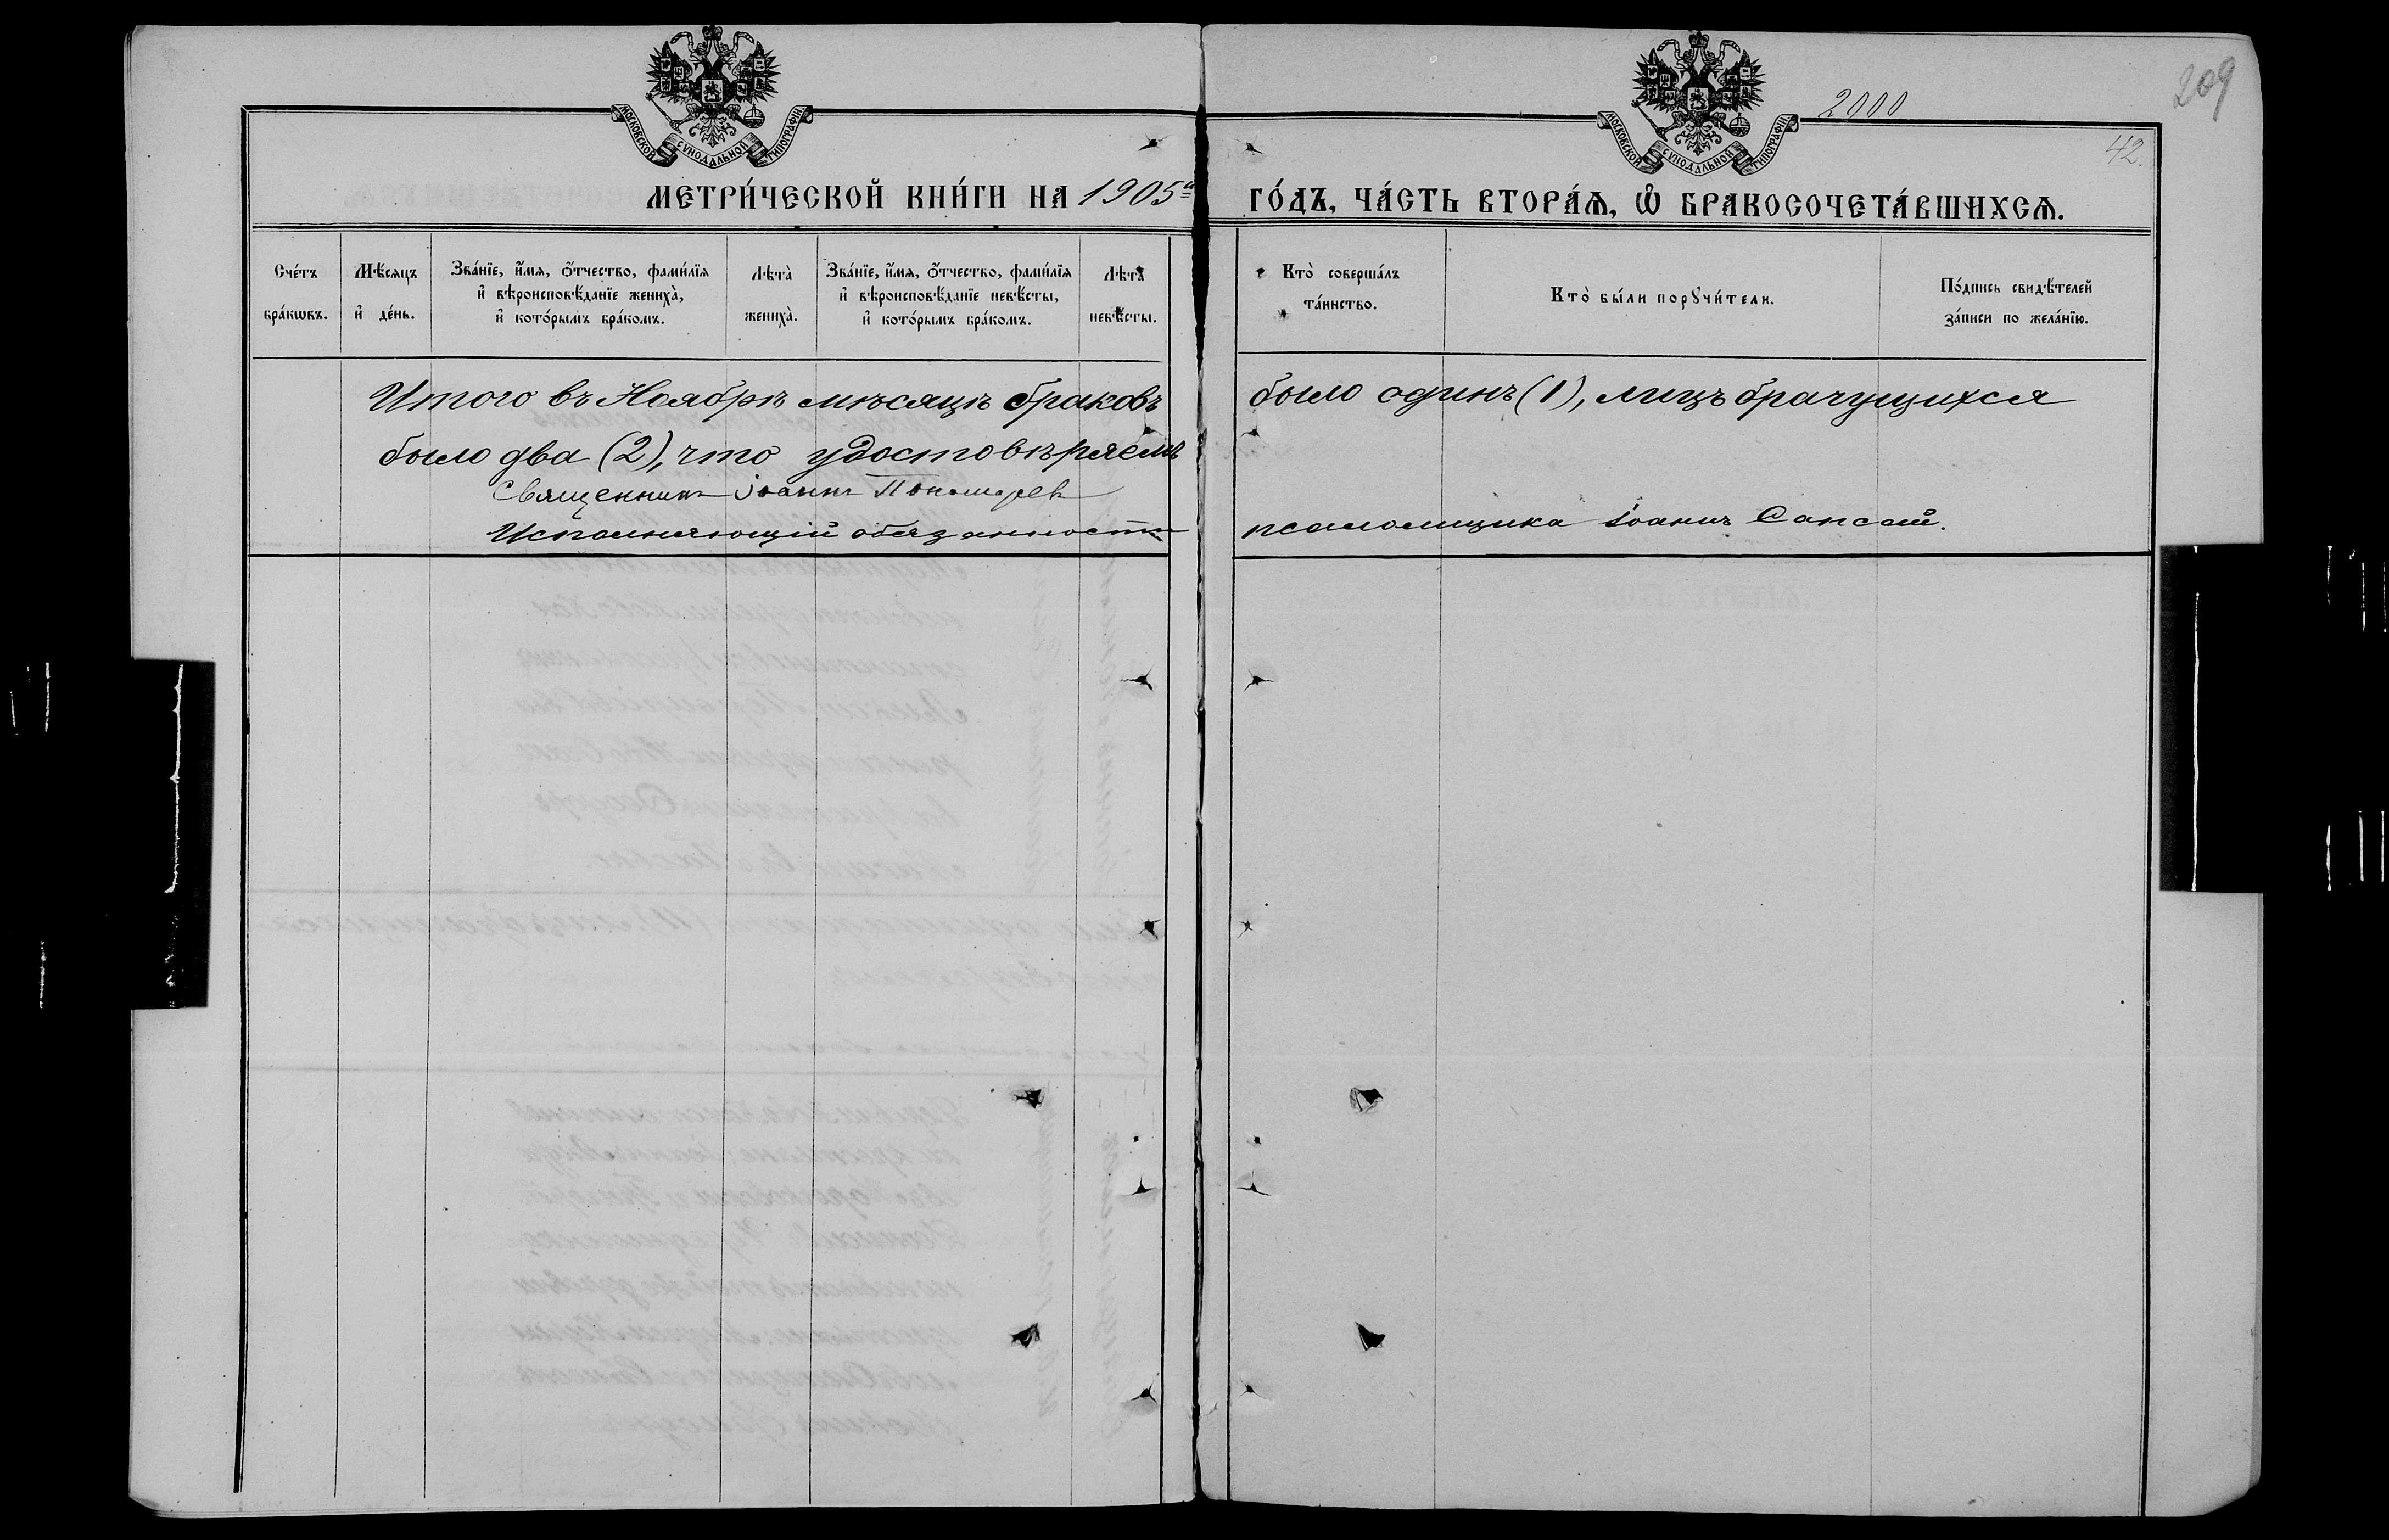 209
2000
42.
МОСКОВСКОЙ СѴНОДАЛЬНОЙ ТИПОГРАФІИ
МОСКОВСКОЙ СѴНОДАЛЬНОЙ ТИПОГРАФІИ
МЕТРИ́ЧЕСКОЙ КНИ́ГИ НА 1905й ГО́ДЪ, ЧА́СТЬ ВТОРА́Ѧ, Ѽ БРАКОСОЧЕТА́ВШИХСѦ.
Сче́тъ
бра́кѡвъ.
Мѣ́сяцъ
и҆ де́нь.
Зва́нїе, и҆́мѧ, ѻ҆́тчество, фами́лїѧ
и҆ вѣроисповѣ́данїе жениха̀,
и҆ кото́рымъ бра́комъ.
Лѣта̀
жениха̀.
Зва́нїе, и҆́мѧ, ѻ҆́тчество, фами́лїѧ
и҆ вѣроисповѣ́данїе невѣ́сты,
и҆ кото́рымъ бра́комъ.
Лѣта̀
невѣ́сты.
Кто̀ соверша́лъ
та́инство.
Кто̀ бы́ли порꙋчи́тели.
По́дпись свидѣ́телей
за́писи по жела́нїю.
Итого въ Ноябрѣ мѣсяцѣ браковъ было одинъ (1), лицъ брачущихся
было два (2), что удостовѣряемъ
Священникъ Іоаннъ Пономарев
Исполняющій обязанности псаломщика Іоаннъ Сапсай.